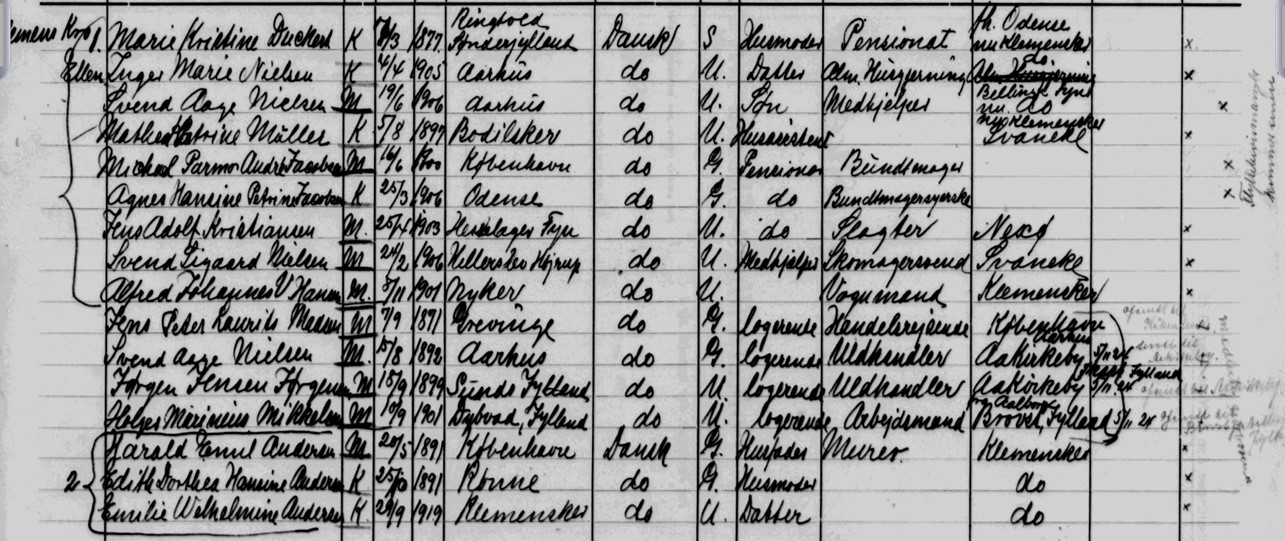 Klemens Kro 1. Marie Kristine Duckert K /3 1877 Ringtved Sønderjylland Dansk S Husmoder Pensionat fh. Odense nu Klemensker
Ellen Inger Marie Nielsen K 4/4 1905 Aarhus do U. Datter Alm. Husgjerning do.
Svend Aage Nielsen M 19/6 1906 Aarhus do U. Søn Medhjælper Bellinge Fyn nu do
Mathea Katrine Müller K 5/8 1897 Bodilsker do U. Husassistent nu Klemensker Svaneke
Michael Parmo André Jacobsen M 16/6 1900 København do G. Pensionær Bundtmager
Agnes Hansine Petrine Jacobsen K 25/3 1906 Odense do G. do Bundtmagersyerske
Jens Adolf Kristiansen M. 25/4 1903 Hesselager Fyn do U. do Slagter Nexø
Svend Sigaard Nielsen M 24/2 1906 Hellerslev Højrup do U. Medhjælper Skomagersvend Svaneke
Alfred Johannes V Hansen M. 3/11 1901 Nyker do U. Vognmand Klemensker
Jens Peter Laurits Madsen M 7/9 1871 Grevinge do G. logerende Handelsrejsende København
Svend Aage Nielsen M. 15/8 1892 Aarhus do G. logerende Uldhandler Aarhus Aakirkeby 5/11 24
Jørgen Jensen Jørgensen M 15/9 1899 Sunds Jylland do U. logerende Uldhandler Jylland Aakirkeby 5/11 24
Holger Marinius Mikkelsen M 10/9 1901 Dybvad, Jylland do U. logerende Arbejdsmand Aalborg Brovst, Jylland 5/11 24
2 Harald Emil Andersen M 20/5 1891 København Dansk G. Husfader Murer. Klemensker
Edith Dorthea Hansine Andersen K 1891 Rønne do G. Husmoder do
Emilie Wilhelmine Andersen K. 29/9 1919 Klemensker do U. Datter do